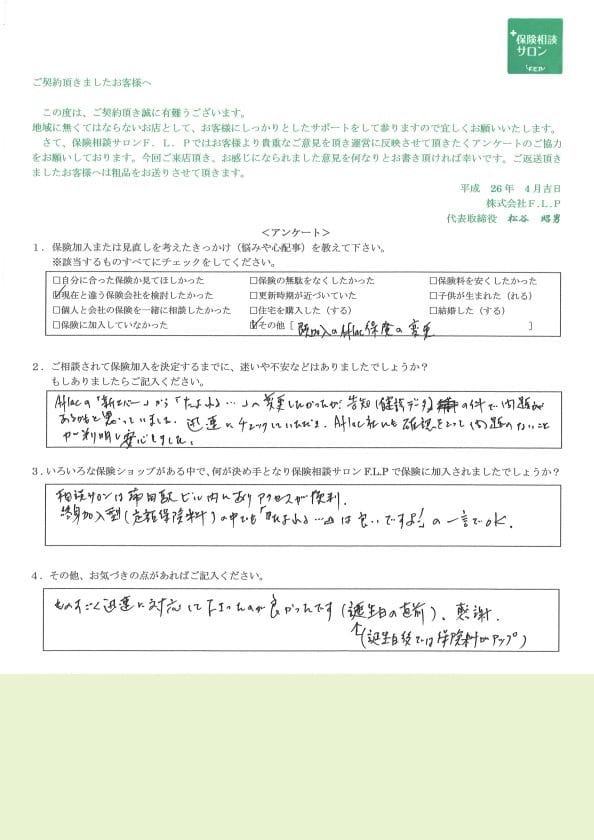 +保険相談
サロン
F.L.P
ご契約頂きましたお客様へ
この度は、ご契約頂き誠に有難うございます。
地域に無くてはならないお店として、お客様にしっかりとしたサポートをして参りますので宜しくお願いいたします。
さて、保険相談サロンF．L．Pではお客様より貴重なご意見を頂き運営に反映させて頂きたくアンケートのご協力
をお願いしております。今回ご来店頂き、お感じになられました意見を何なりとお書き頂ければ幸いです。ご返送頂き
ましたお客様へは粗品をお送りさせて頂きます。
平成 26年 4月吉日
株式会社F.L.P
代表取締役 松谷 昭男
＜アンケート＞
１．保険加入または見直しを考えたきっかけ（悩みや心配事）を教えて下さい。
※該当するものすべてにチェックをしてください。
□自分に合った保険か見てほしかった □保険の無駄をなくしたかった □保険料を安くしたかった
☑現在と違う保険会社を検討したかった □更新時期が近づいていた □子供が生まれた（れる）
□個人と会社の保険を一緒に相談したかった □住宅を購入した（する） □結婚した（する）
□保険に加入していなかった ☑その他［ 既加入のAflac保険の変更 ］
２．ご相談されて保険加入を決定するまでに、迷いや不安などはありましたでしょうか？
もしありましたらご記入ください。
Aflacの「新エバー」から「たよれる…」への変更したかったが、告知（健診データ）の件で問題が
あるかもと思っていました。迅速にチェックしていただき、Aflac社にも確認をとって問題のないこと
が判明し安心しました。
３.いろいろな保険ショップがある中で、何が決め手となり保険相談サロンF.L.Pで保険に加入されましたでしょうか？
相談サロンは蒲田駅ビル内にありアクセスが便利.
終身加入型（定額保険料）の中でも「『たよれる…』は良いですよ!」の一言でOK.
４．その他、お気づきの点があればご記入ください。
ものすごく迅速に対応して下さったのが良かったです（誕生日の直前）、感謝.
↑（誕生日後では保険料がアップ）